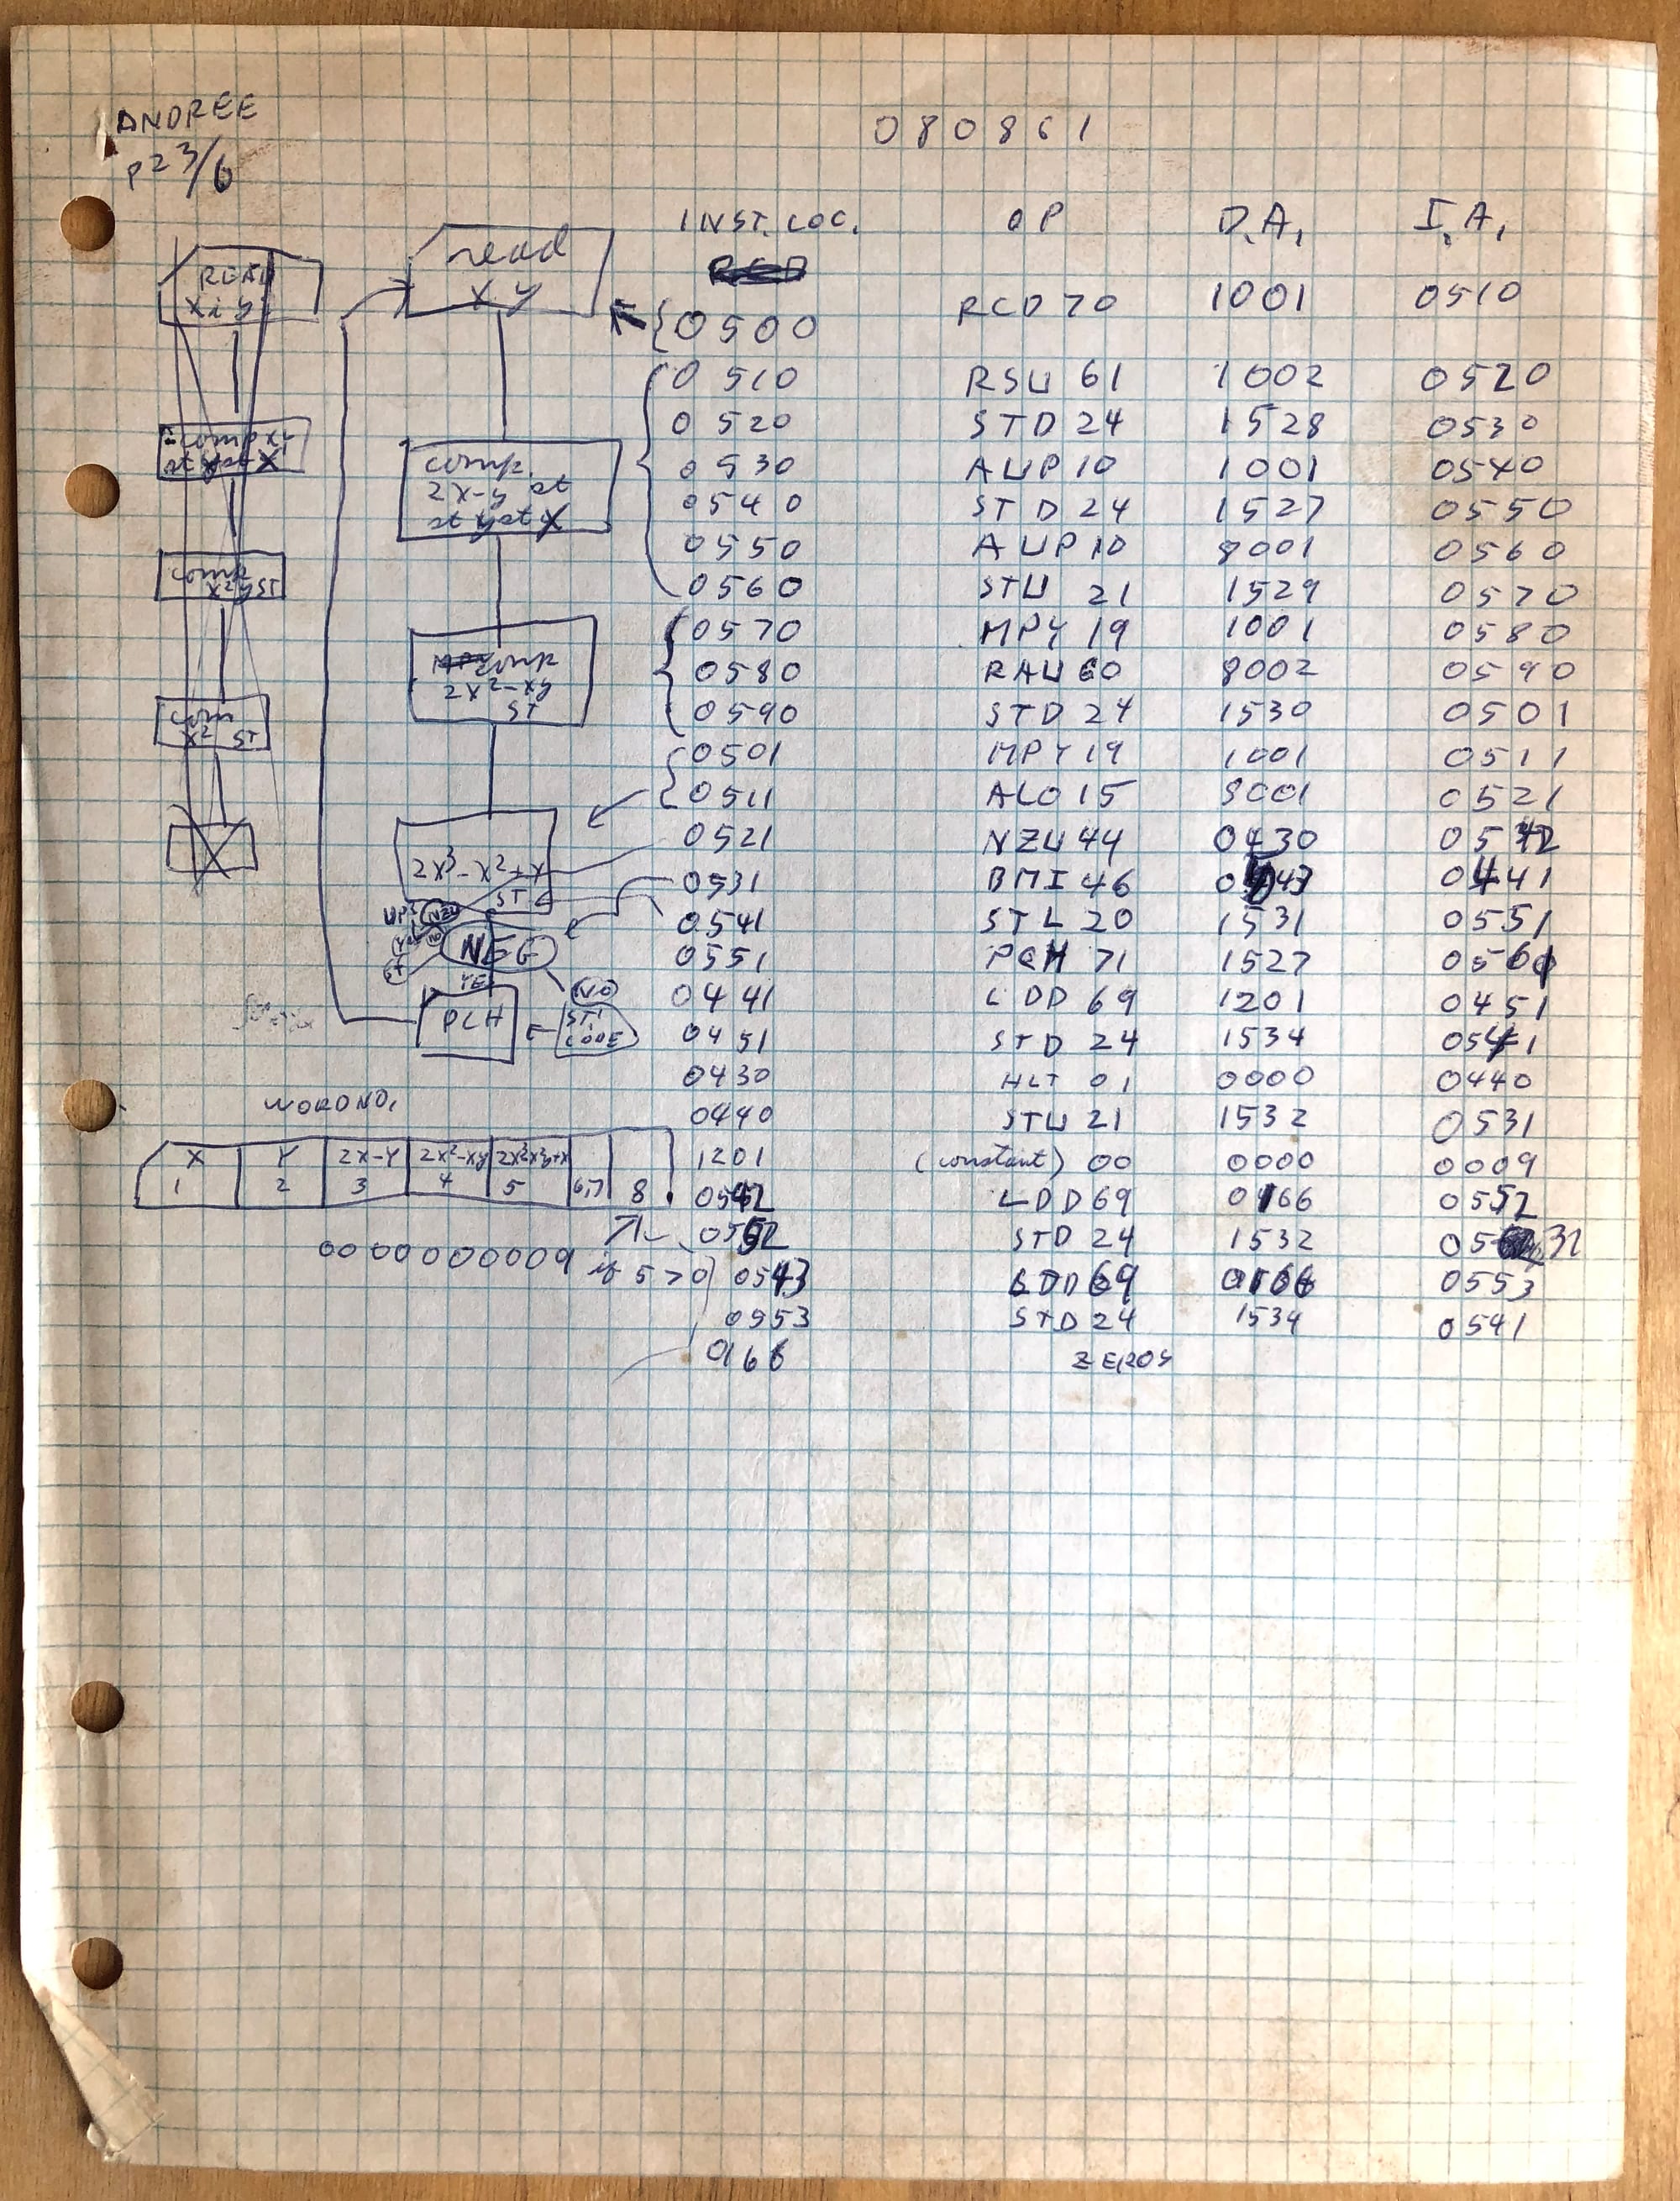 ANDREE
P23/6
080861
INST. LOC. OP D.A. I.A.
0500 RCD 70 1001 0510
0510 RSU 61 1002 0520
0520 STD 24 1528 0530
0530 AUP 10 1001 0540
0540 STD 24 1527 0550
0550 AUP 10 8001 0560
0560 STU 21 1529 0570
0570 MPY 19 1001 0580
0580 RAU 60 8002 0590
0590 STD 24 1530 0501
0501 MPY 19 1001 0511
0511 ALO 15 8001 0521
0521 NZU 44 0430 0542
0531 BMI 46 0543 0441
0541 STL 20 1531 0551
0551 PCH 71 1527
0441 LDD 69 1201 0451
0451 STD 24 1534 0541
0430 HLT 01 0000 0440
0440 STU 21 1532 0531
1201 (constant) 00 0000 0009
0542 LDD 69 0166 0552
0552 STD 24 1532 0532
0543 LDD 69 0166 0553
0553 STD 24 1534 0541
0166 ZEROS
READ
read
x y
comp.
2x-y st
st y st x
comp
2x²-xy
ST
2x³-x²+x
ST
NZU
NEG
YES
NO
PCH
ST
CODE
WORD NO.
X Y 2X-Y 2X²-XY
1 2 3 4 5 6,7 8
0000000009 if 5>0